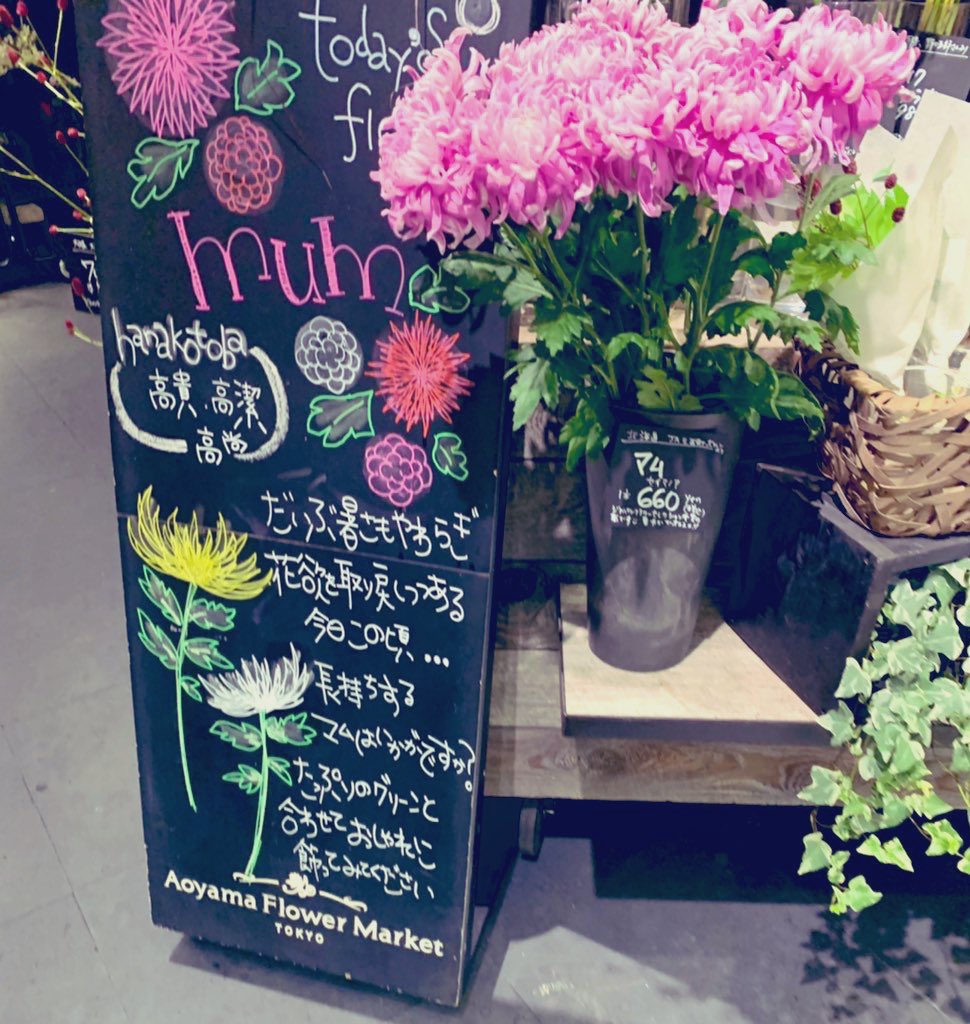 today's
fl
mum
hanakotoba
高貴.高潔
高尚
だいぶ暑さもやわらぎ
花欲を取り戻しつつある
今日この頃...
長持ちする
マムはいかがですか?
たっぷりのグリーンと
合わせておしゃれに
飾ってみてください
Aoyama Flower Market
TOKYO
北海道
マム
1本 660 yen